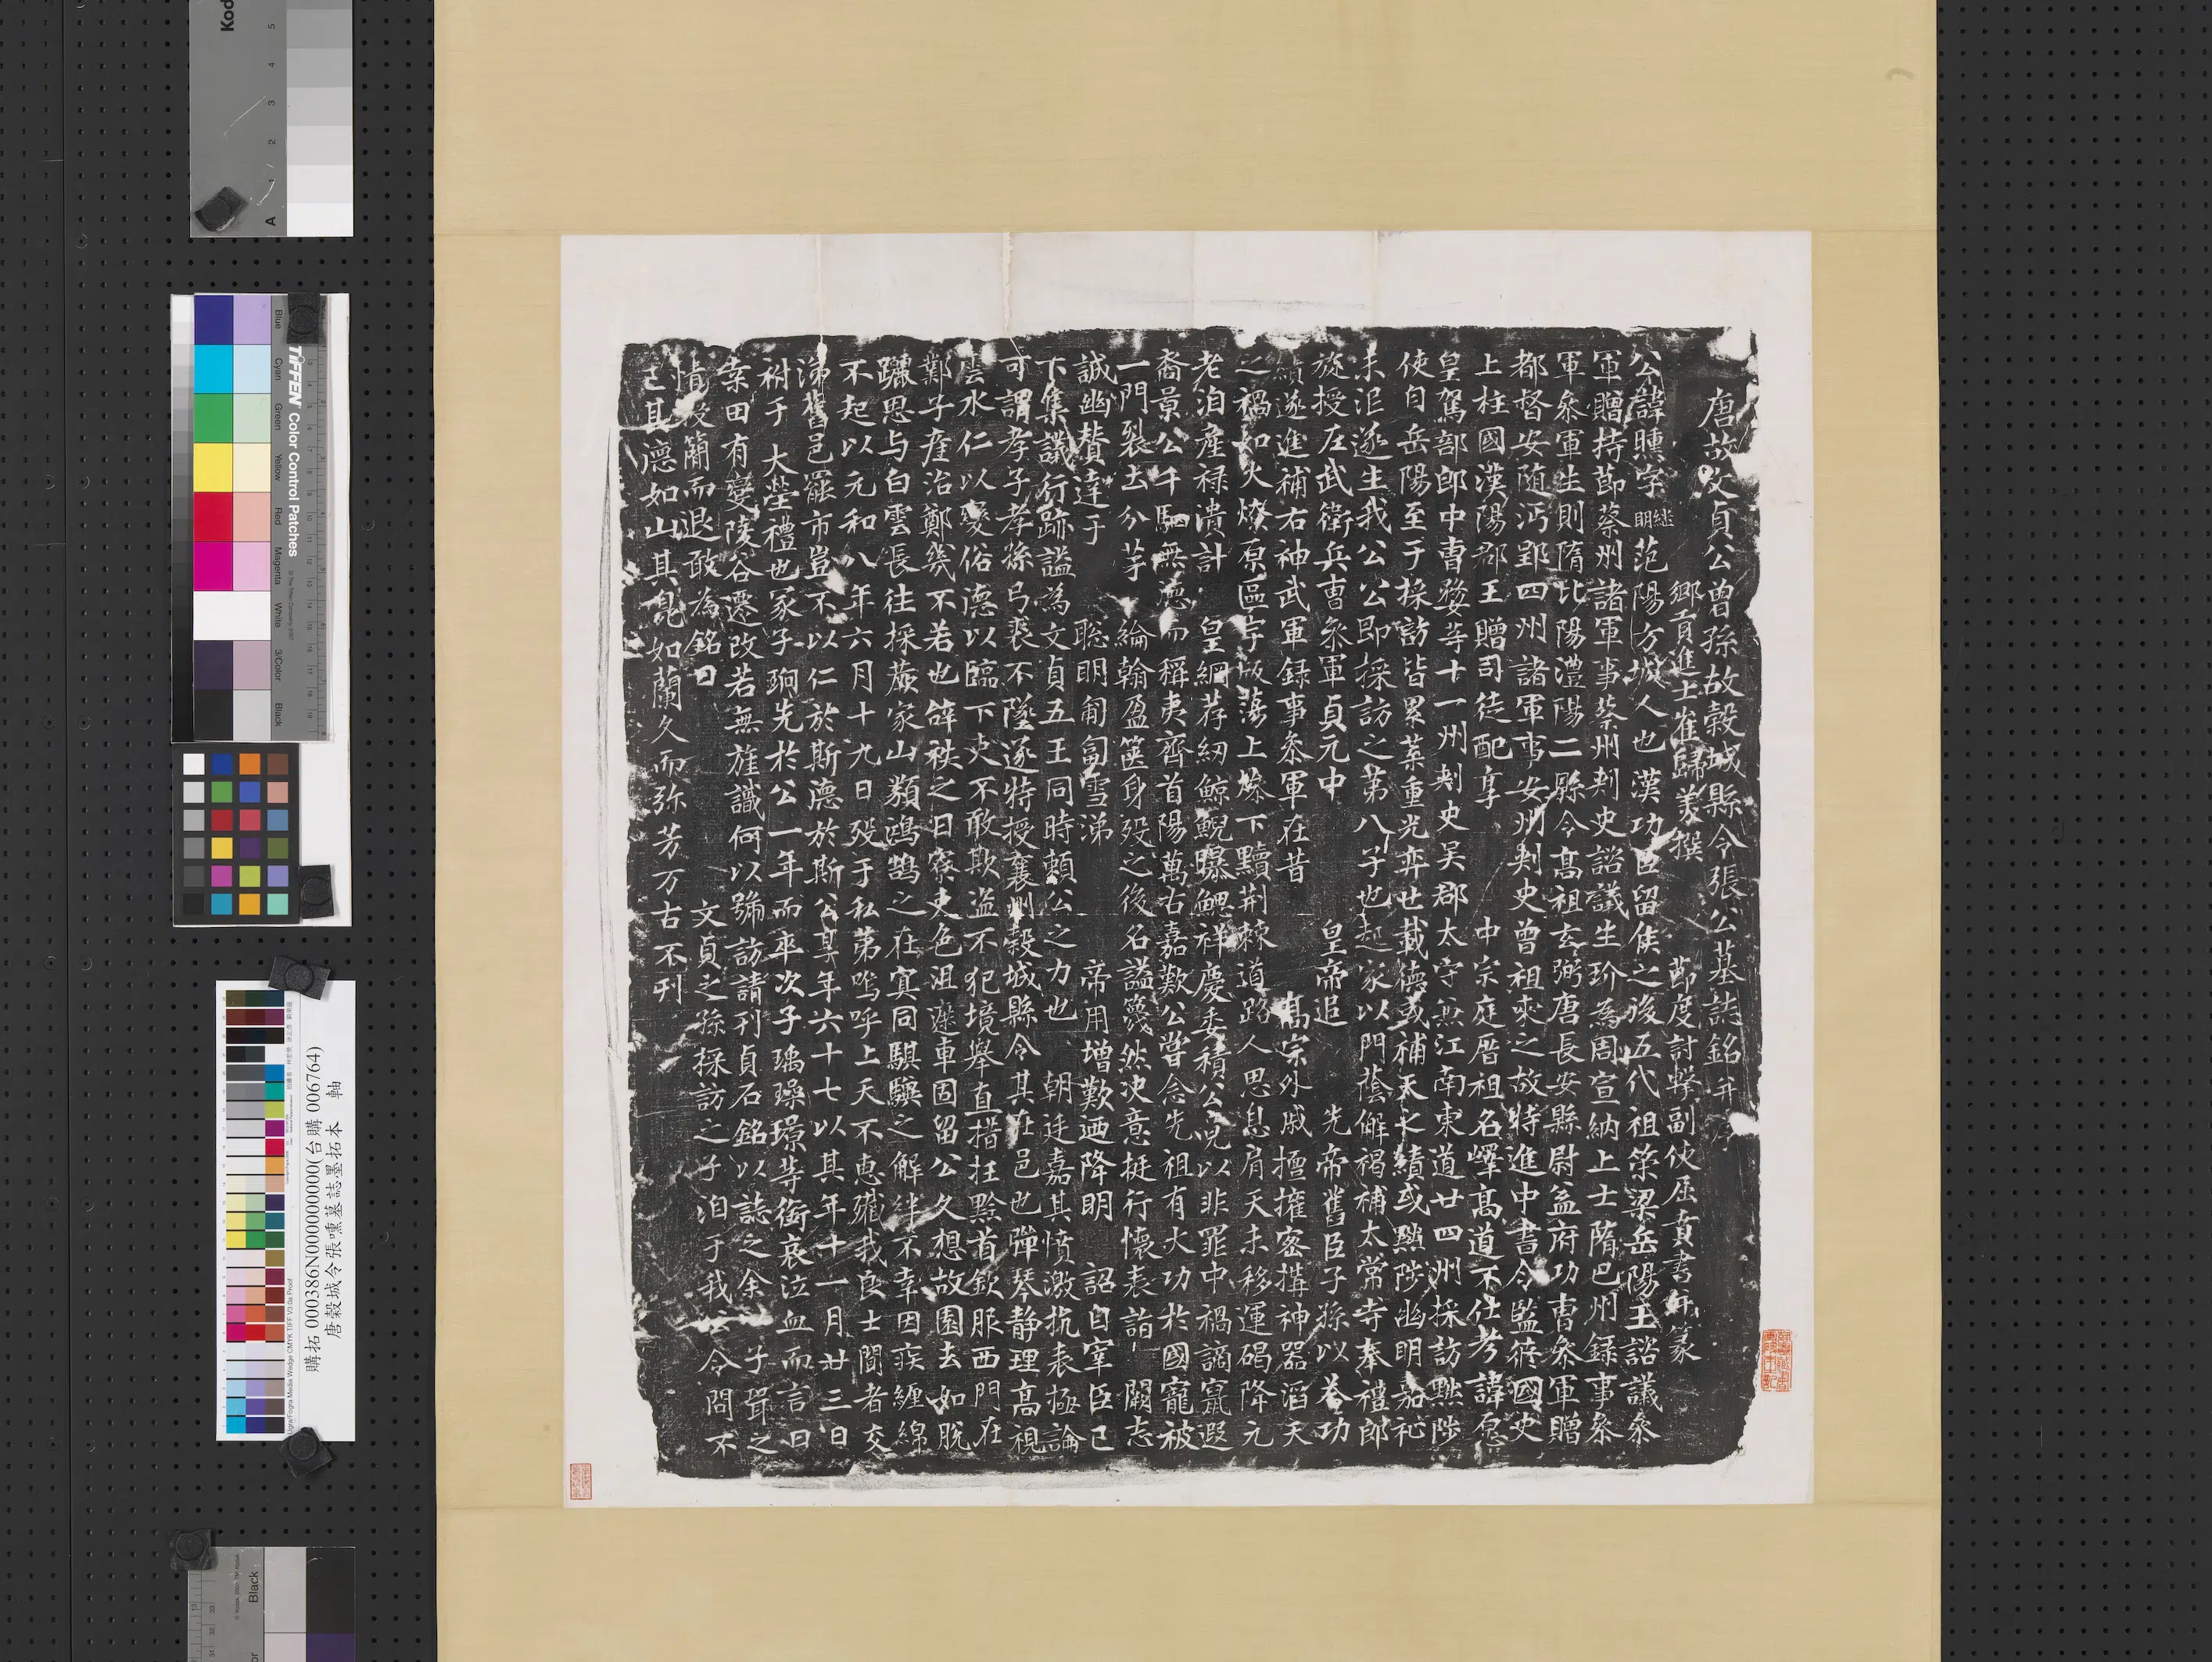 唐故文貞公曾孫故穀城縣令張公墓誌銘并序
鄉貢進士崔歸美撰 節度討擊副使屈賁書并篆
公諱曛字繼明范陽方城人也漢功臣留侯之後五代祖策梁岳陽王諮議參
軍贈持節蔡州諸軍事蔡州刺史諮議生玠為周宣納上士隋巴州錄事參
軍參軍生則隋比陽澧陽二縣令高祖玄弼唐長安縣尉益府功曹參軍贈
都督安隨沔郢四州諸軍事安州刺史曾祖柬之故特進中書令監脩國史
上柱國漢陽郡王贈司徒配享 中宗庭厝祖名嶧高道不仕考諱愿
皇駕部郎中曹婺等十一州刺史吴郡太守兼江南東道廿四州採訪黜陟
使自岳陽至于採訪皆累葉重光弈世載德或補天之績或黜陟幽明嘉祉
未泯遂生我公公即採訪之第八子也起家以門蔭解褐補太常寺奉禮郎
旋授左武衛兵曹參軍貞元中 皇帝追 先帝舊臣子孫以荅功
績遂進補右神武軍録事參軍在昔 高宗外戚擅權密搆神器滔天
之禍如火燎原區宇版蕩上慘下黷荆棘道路人思息肩天未移運碣降元
老洎產禄潰計 皇綱荐紉鯨鯢曝鰓祥慶委積公兄以非罪中禍謫竄遐
裔景公千駟無德而稱夷齊首陽萬古嘉歎公嘗念先祖有大功於國寵被
一門裂土分茅 綸翰盈篋身殁之後名謚篾然决意挺行懷表詣 闕志
誠幽賛達于 聦明匍匐雪涕 帝用增歎迺降明 詔自宰臣已
下集議行跡謚為文貞五王同時頼公之力也 朝廷嘉其憤激抗表極論
可謂孝子孝孫弓裘不墜遂特授襄州穀城縣令其在邑也彈琴静理高視
雲水仁以變俗德以臨下吏不敢欺盗不犯境舉直措枉黔首欽服西門在
鄴子產治鄭幾不若也辭秩之日寮吏色沮遮車固留公久想故園去如脱
躧思与白雲長往採薇家山纇鴻鵠之在寞同騏驥之解絆不幸因疾纏綿
不起以元和八年六月十九日殁于私苐嗚呼上天不惠殲我良士聞者交
涕舊邑罷市豈不以仁於斯德於斯公享年六十七以其年十一月廿三日
祔于 大塋禮也冢子珦先於公一年而卒次子瑀璪璟等銜哀泣血而言曰
桒田有變陵谷遷改若無旌識何以號訪請刊貞石銘以誌之余 子聟之
情授簡而退敢為銘曰 文貞之孫採訪之子洎于我公令問不
已其德如山其皃如蘭久而弥芳万古不刊
購拓 000386N000000000(台購 006764)
唐榖城令張曛墓誌墨拓本 軸
Kodak
TIFFEN Color Control Patches
Blue Cyan Green Yellow Red Magenta White 3/Color Black
Black